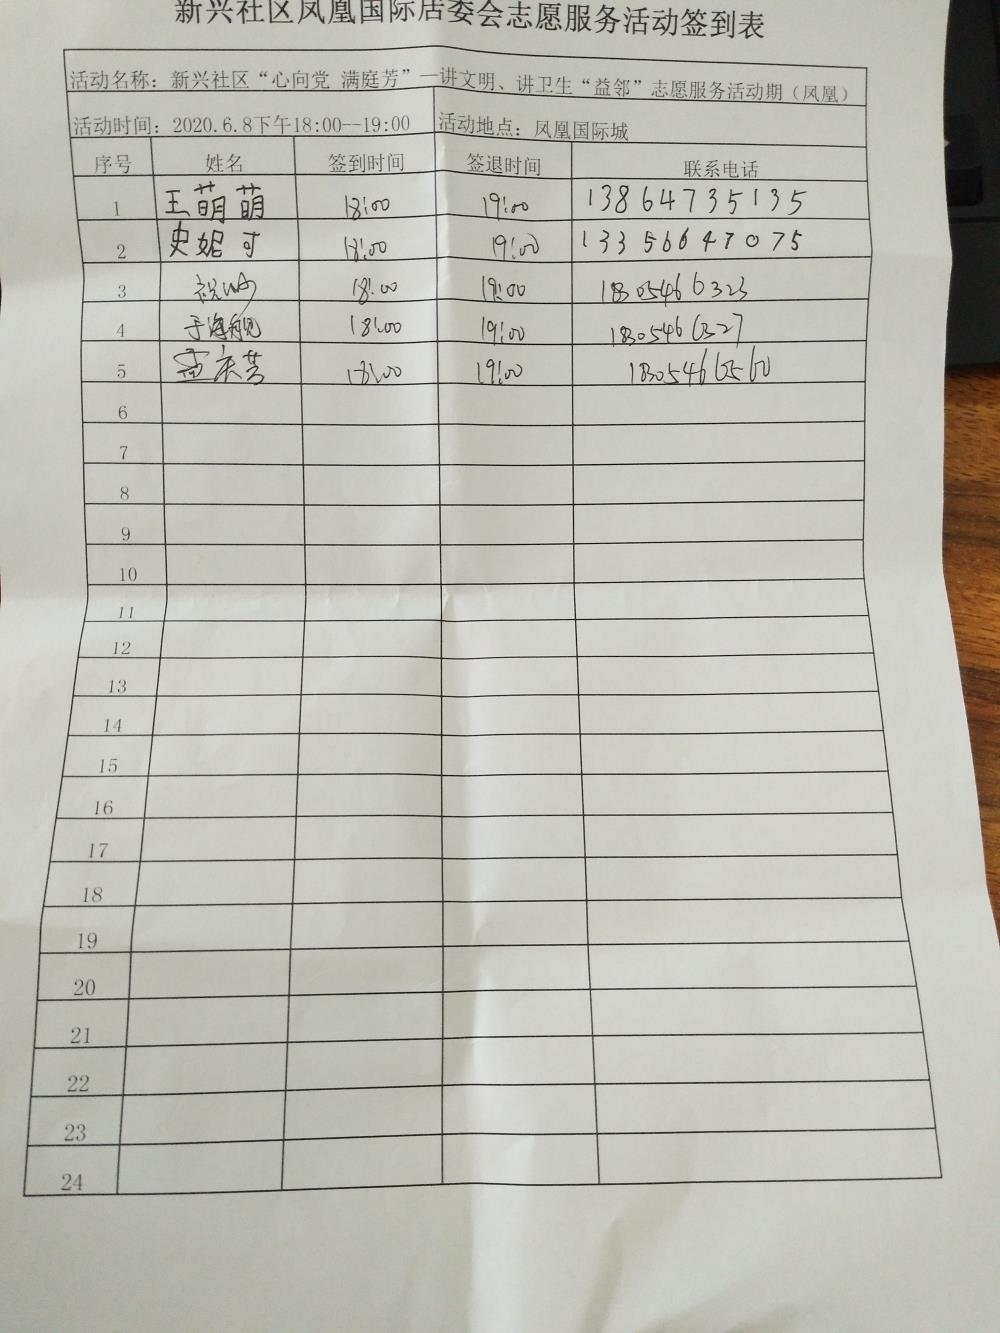 新兴社区凤凰国际居委会志愿服务活动签到表
活动名称：新兴社区“心向党 满庭芳”一讲文明、讲卫生“益邻”志愿服务活动期（凤凰）
活动时间：2020.6.8下午18:00--19:00 活动地点：凤凰国际城
序号 姓名 签到时间 签退时间 联系电话
1 王萌萌 18:00 19:00 13864735135
2 史妮可 18:00 19:00 13356647075
3 18:00 19:00 18305466323
4 于海舰 18:00 19:00 18305466327
5 孟庆芳 18:00 19:00 18305466560
6
7
8
9
10
11
12
13
14
15
16
17
18
19
20
21
22
23
24